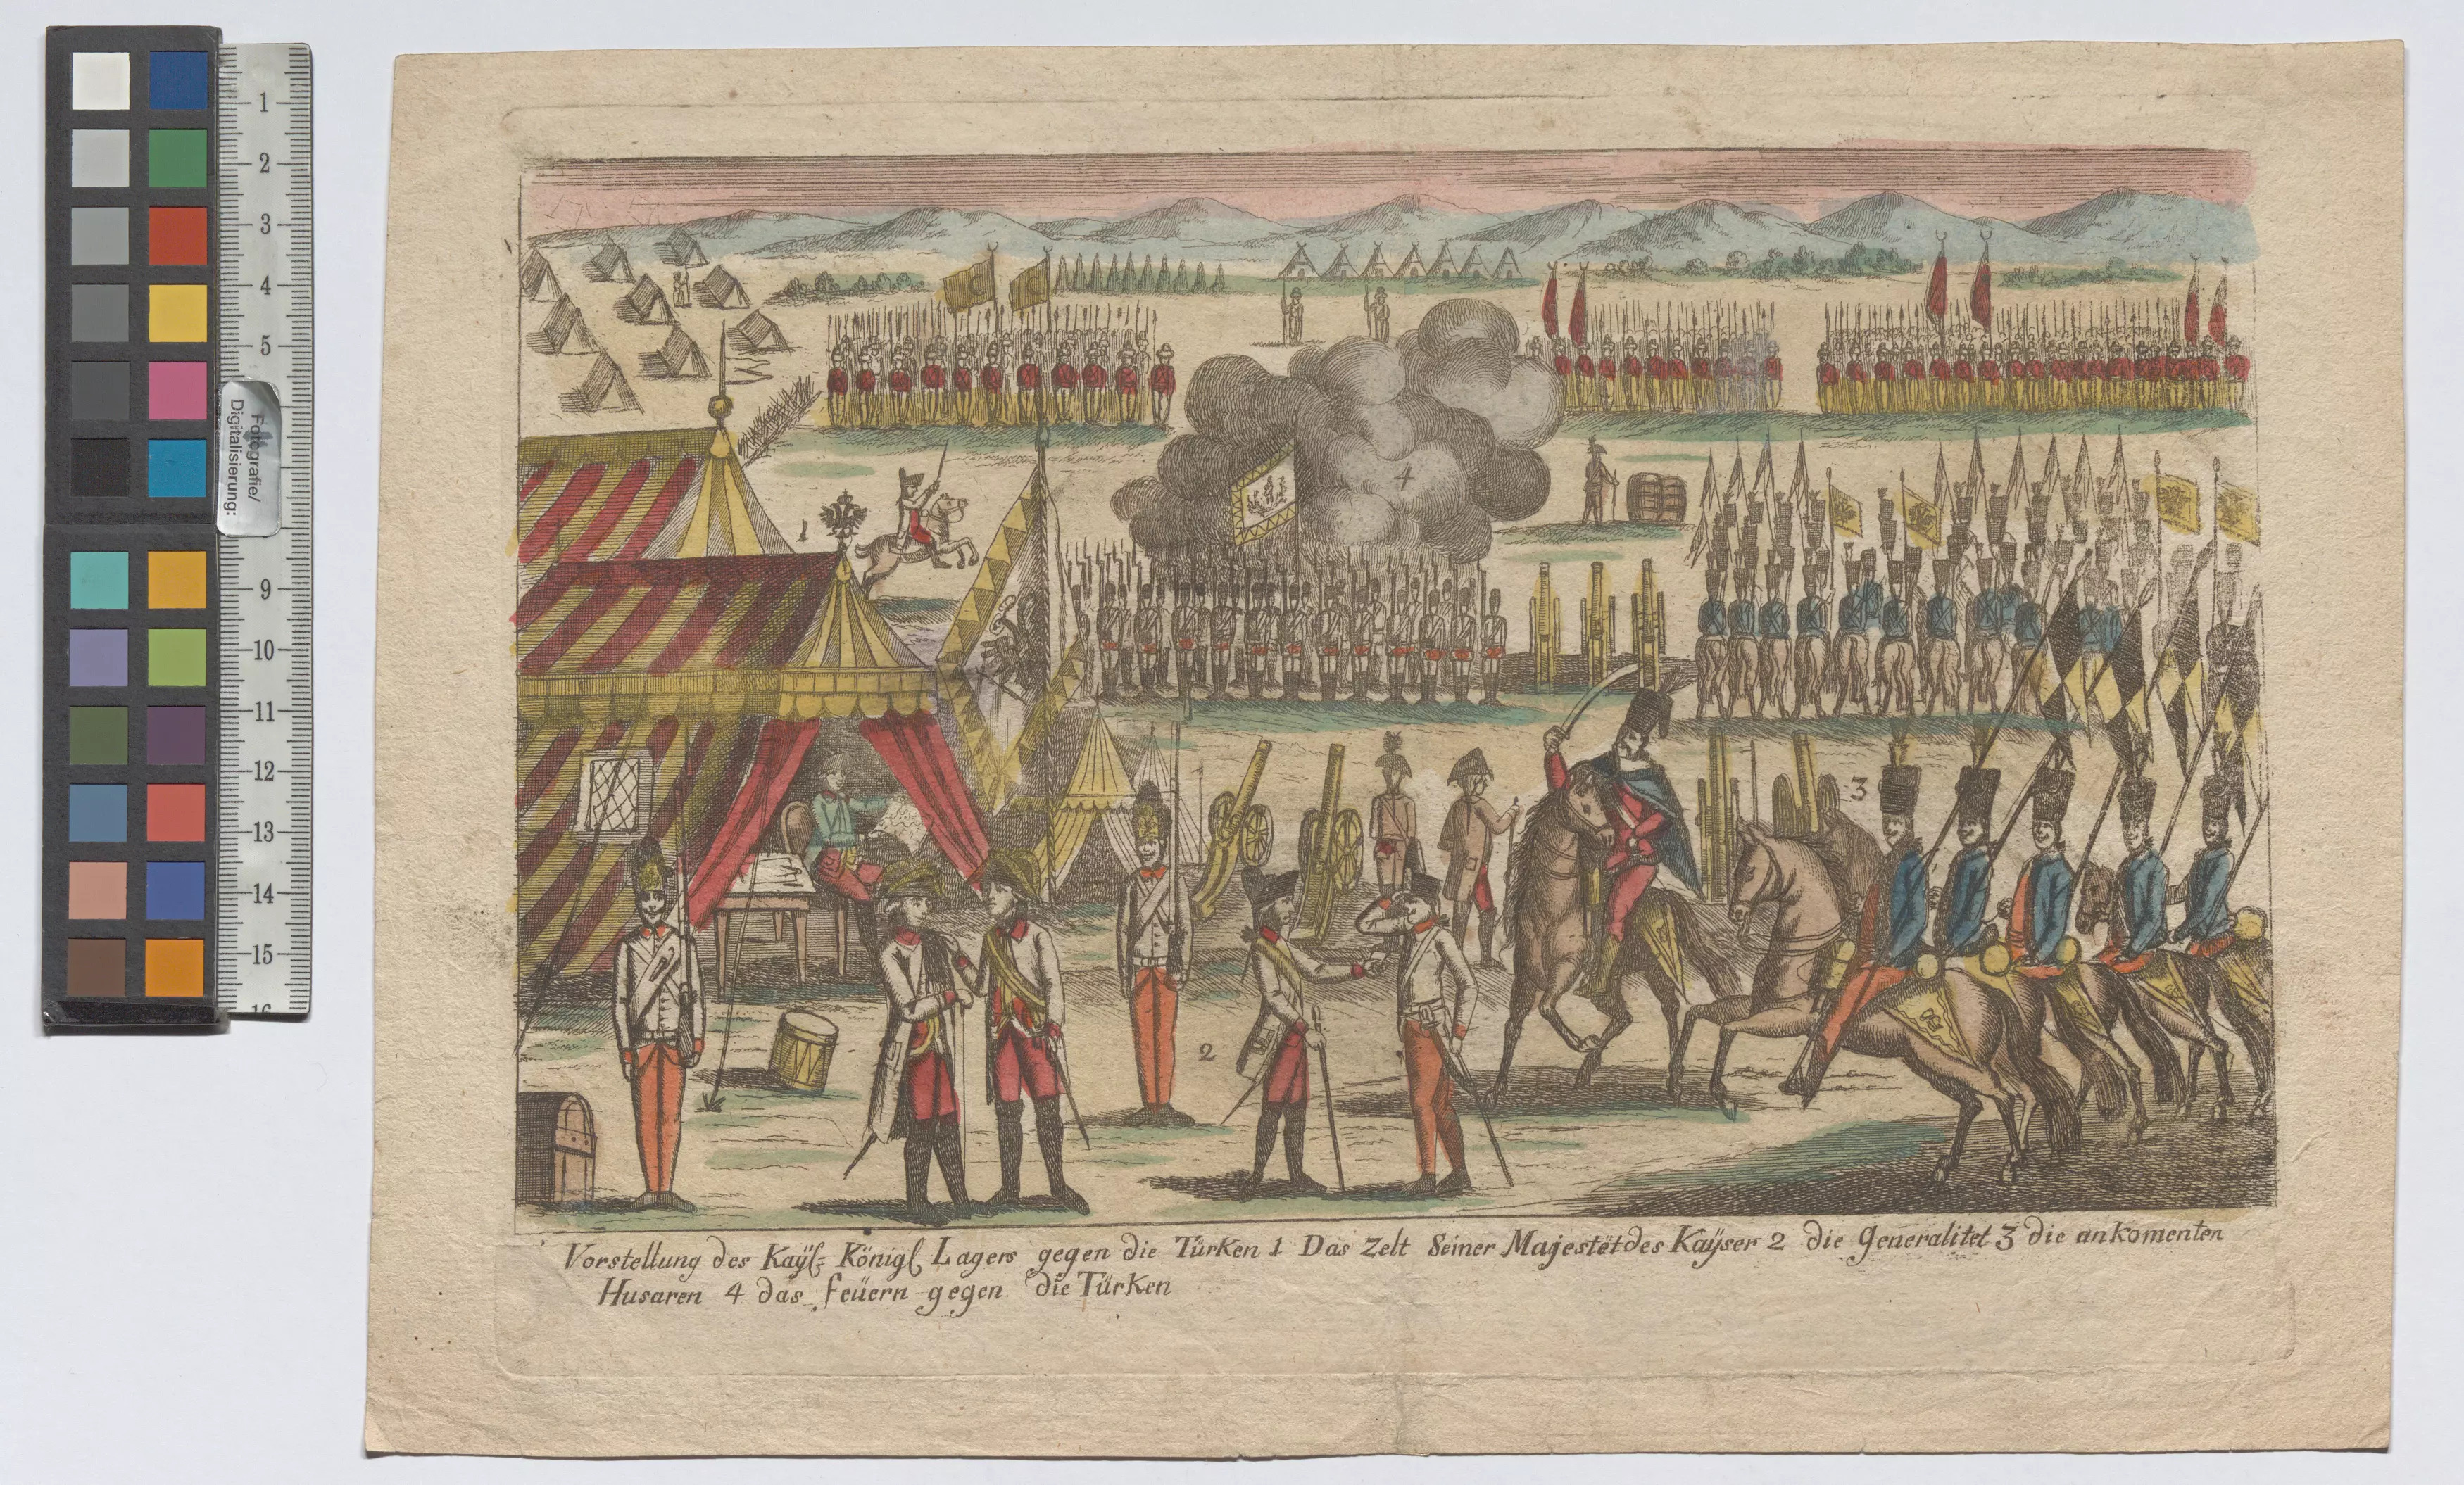 1
2
3
4
5
9
10
11
12
13
14
15
16
Fotografie/
Digitalisierung:
1
4
3
2
Vorstellung des Kaÿſ: Königl Lagers gegen die Türken 1 Das Zelt Seiner Majestët des Kaÿser 2 die Generalitet 3 die ankomenten
Husaren 4 das feüern gegen die Türken